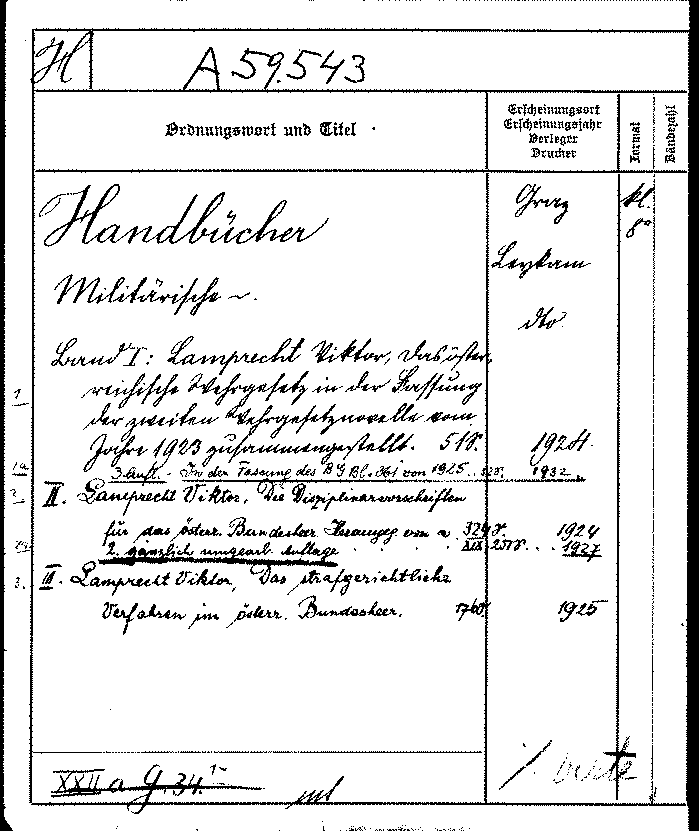 H A 59.543
Ordnungswort und Titel
Erscheinungsort
Erscheinungsjahr
Verleger
Drucker
Format
Bändezahl
Handbücher
Graz
kl.
8°
Leykam
Militärische ~.
dto.
Band I: Lamprecht Viktor, Das öster-
1. reichische Wehrgesetz in der Fassung
der zweiten Wehrgesetznovelle vom
Jahre 1923 zusammengestellt. 51 S. 1924.
1a 3. Aufl. - In der Fassung des BGBl. 361 von 1925 1932
2. II. Lamprecht Viktor, Die Disziplinarvorschriften
für das österr. Bundesheer. Herausgeg. von ~ 324 S. 1924
2a 2. gänzlich umgearb. Auflage XIX 251 S. 1927
3. III. Lamprecht Viktor, Das strafgerichtliche
Verfahren im österr. Bundesheer. 176 S. 1925
XXII a G. 34.
./. verte